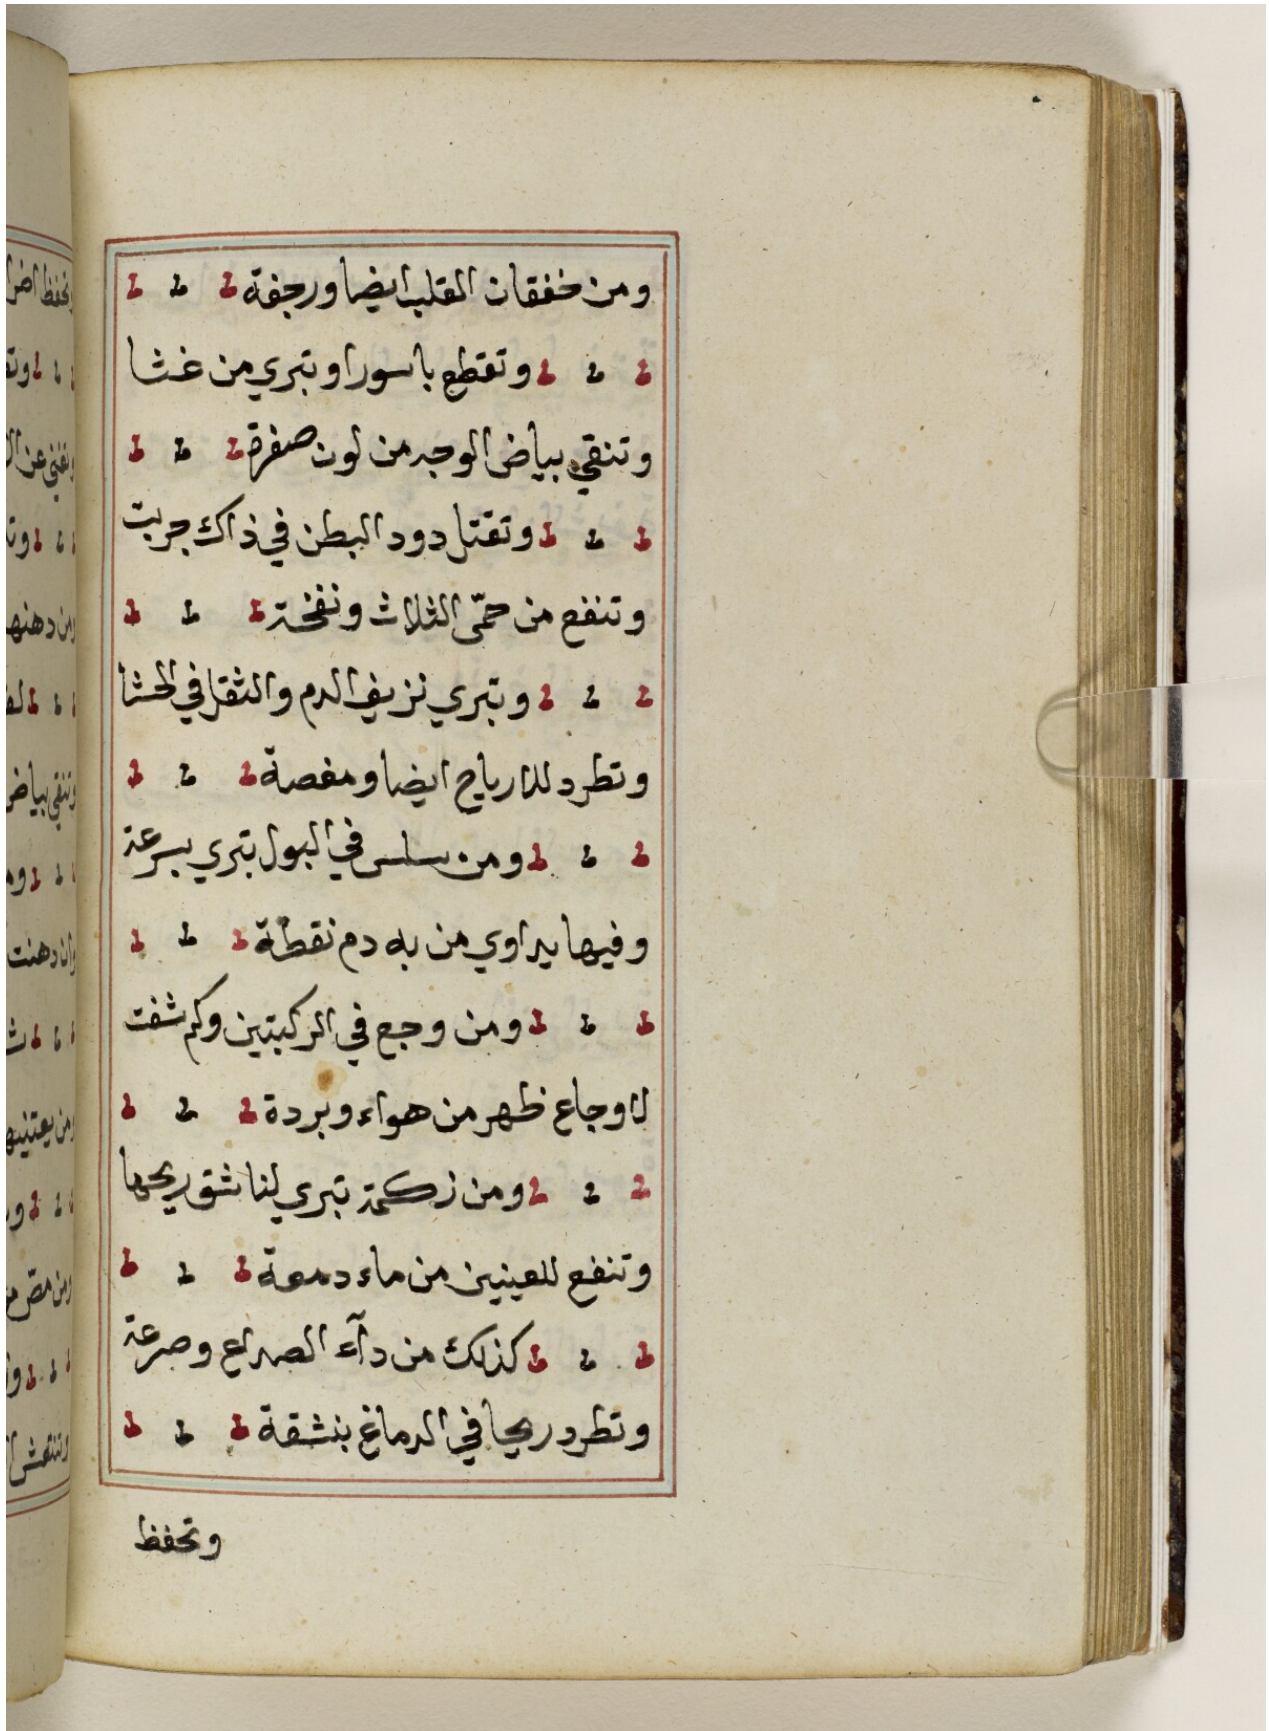 ومن خفقان القلب ايضا ورجفة
وتقطع باسورا وتبري من غشا
وتنقي بياض الوجه من لون صفرة
وتقتل دود البطن في ذاك جربت
وتنفع من حمّى الثلاث ونفخة
وتبري نزيف الدم والثقل في الحشا
وتطرد للارياح ايضا ومغصة
ومن سلس في البول تبري بسرعة
وفيها يداوي من به دم نقطة
ومن وجع في الركبتين وكم شفت
لاوجاع ظهر من هواء وبردة
ومن زكمة تبري لناشق ريحها
وتنفع للعينين من ماء دمعة
كذلك من دآء الصداع وصرعة
وتطرد ريحا في الدماغ بنشقة
وتحفظ